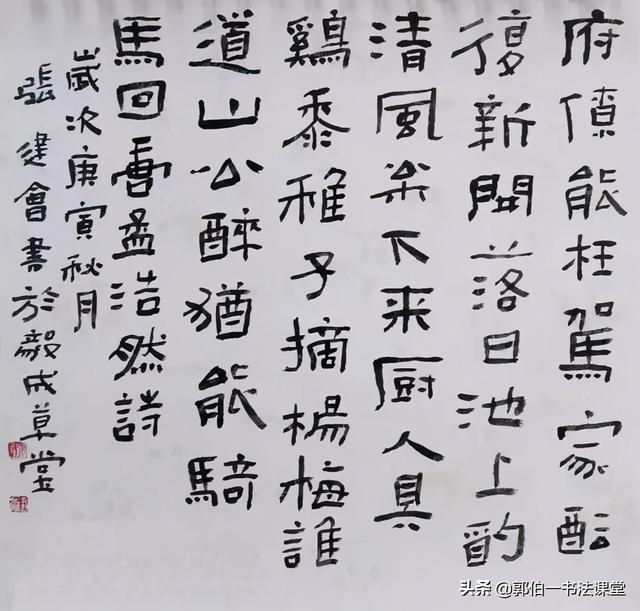 府僚能枉駕家醞
復新開落日池上酌
清風松下来厨人具
鷄黍稚子摘楊梅誰
道山公醉猶能騎
馬回孟浩然詩
歲次庚寅秋月
張建會書於毅成草堂
头条 @郭伯一书法课堂